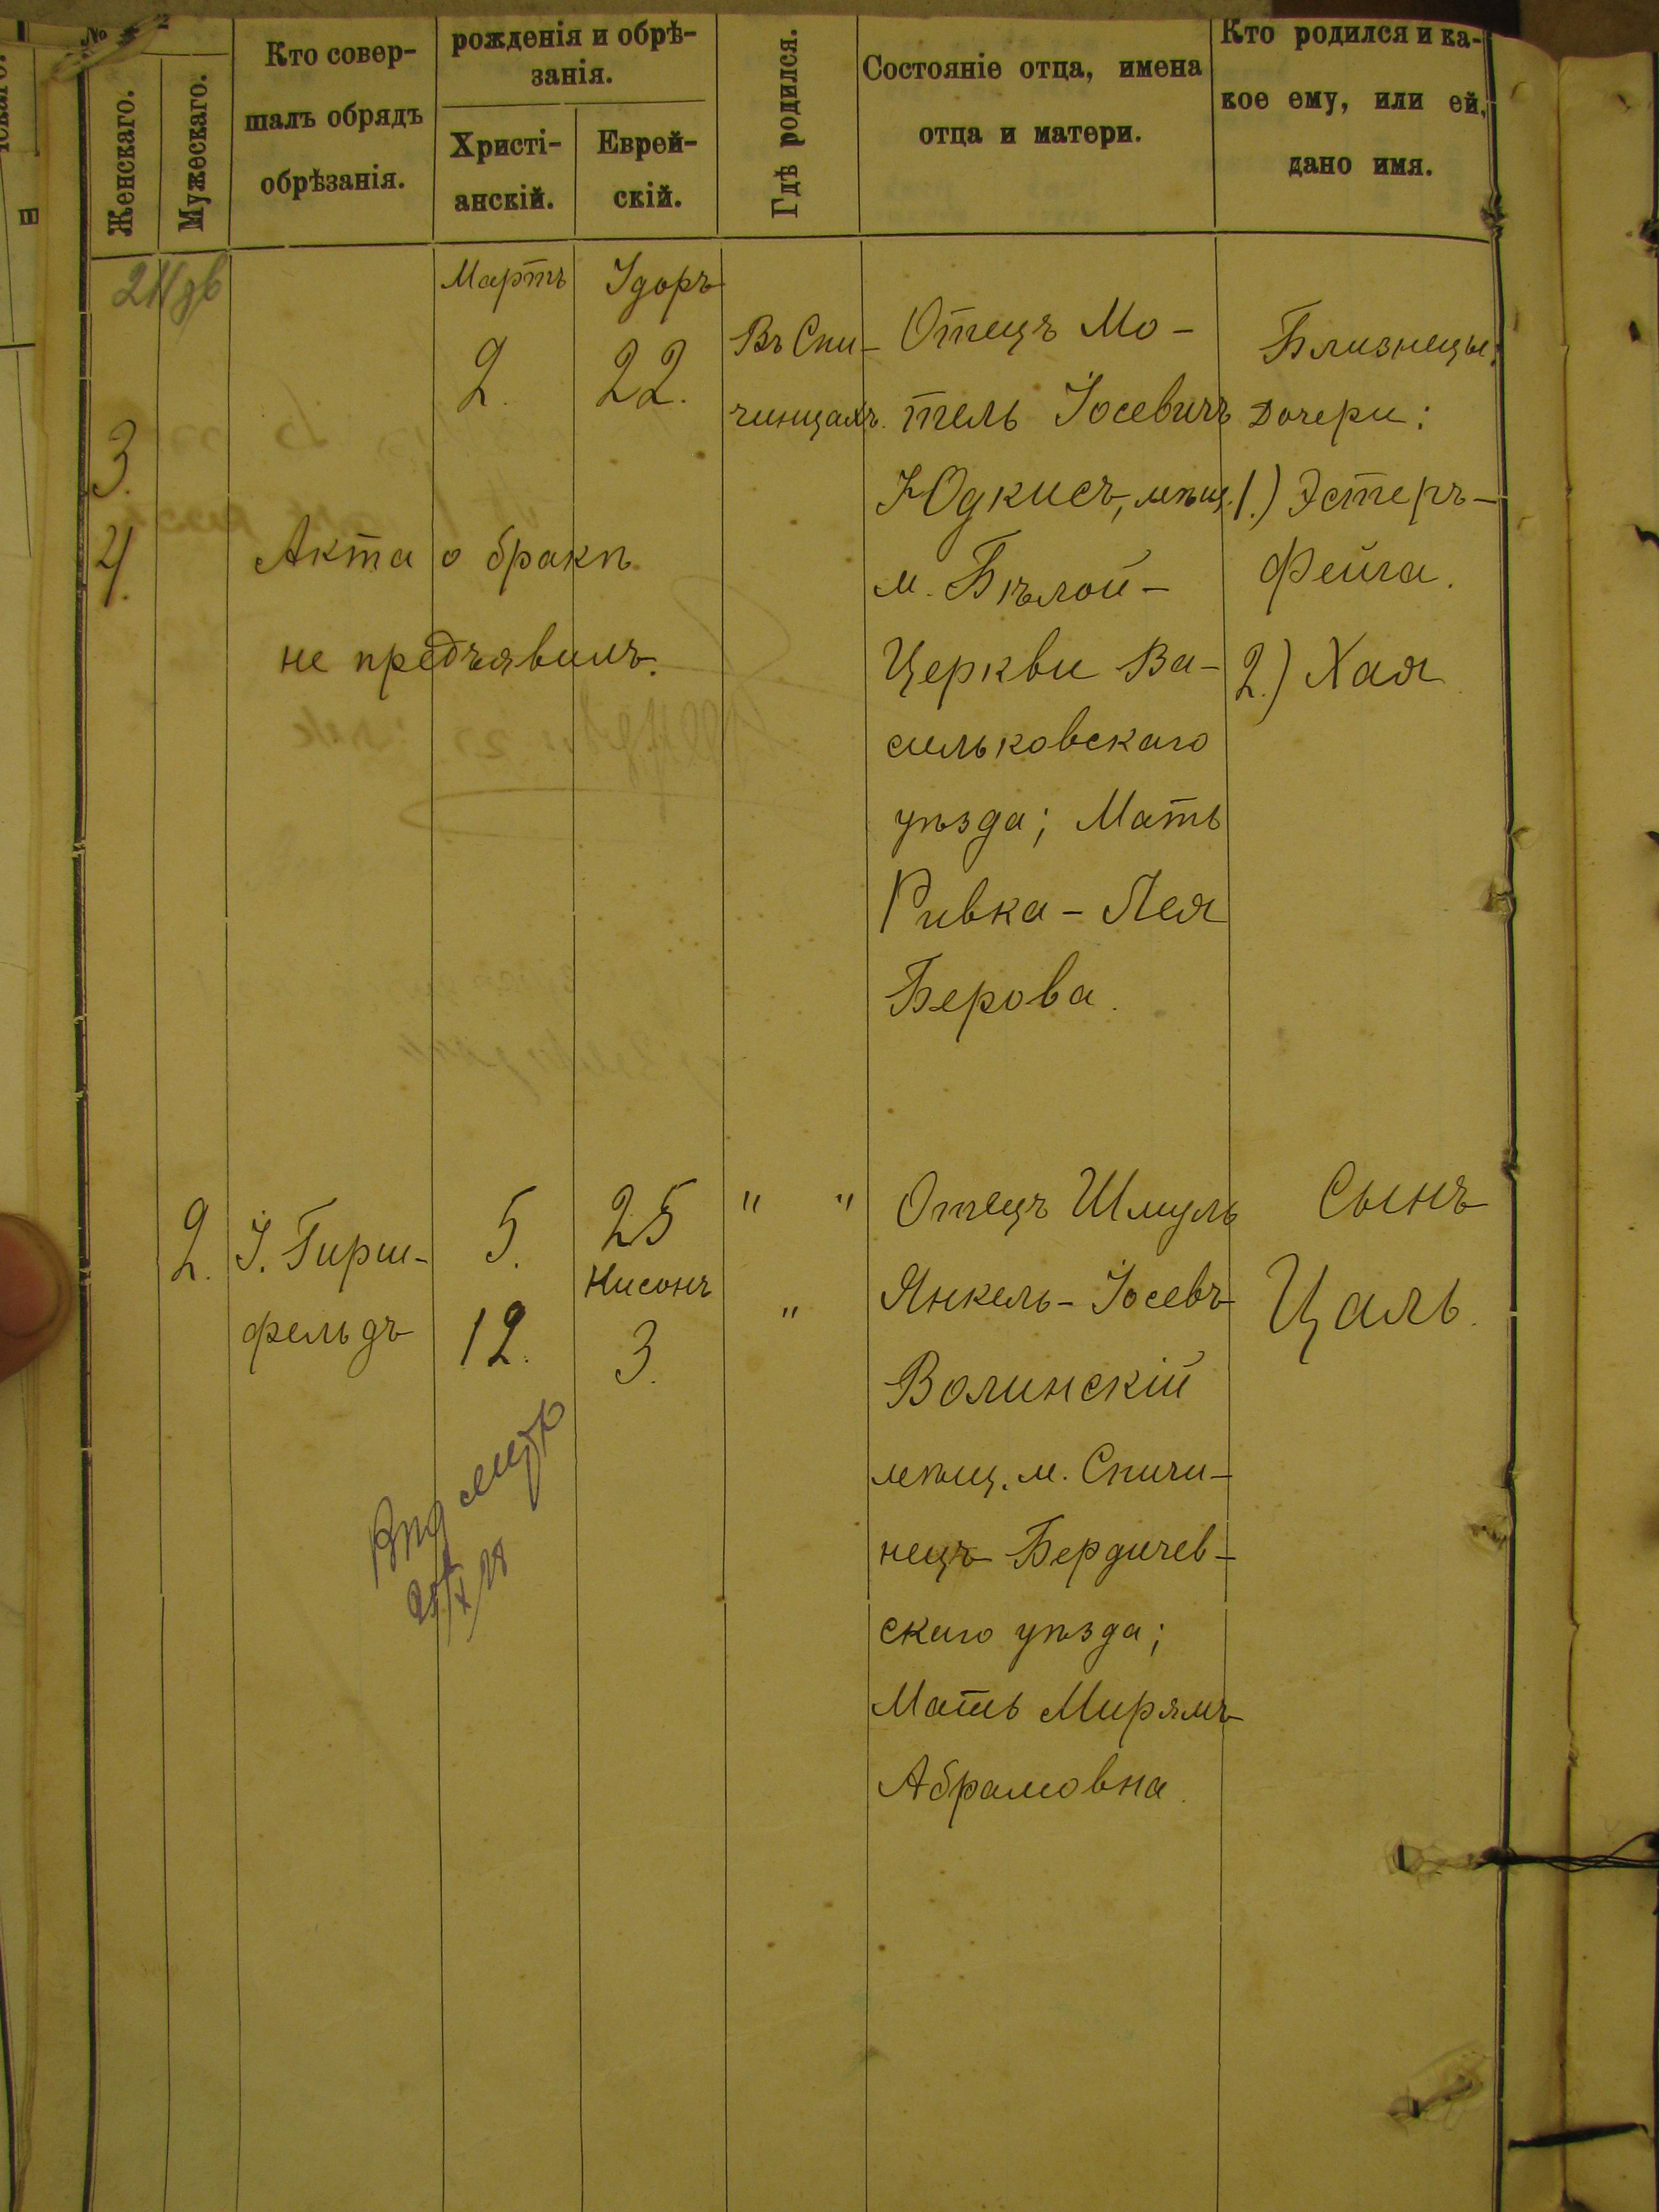 №
Женскаго.
Мужескаго.
Кто совер-
шалъ обрядъ
обрѣзанія.
рожденія и обрѣ-
занія.
Христі-
анскій.
Еврей-
скій.
Гдѣ родился.
Состояніе отца, имена
отца и матери.
Кто родился и ка-
кое ему, или ей,
дано имя.
3.
4.
Акта о бракѣ
не предъявилъ.
Мартъ
2.
Удоръ
22.
Въ Спи-
чинцахъ.
Отецъ Мо-
тель Іосевичъ
Юдкисъ, мѣщ.
м. Бѣлой-
Церкви Ва-
сильковскаго
уѣзда; Мать
Ривка-Лея
Берова.
Близнецы:
Дочери:
1.) Эстеръ-
Фейга.
2.) Хая
2.
І. Гирш-
фельдъ
5.
12.
25
Нисонъ
3.
" "
"
Отецъ Шмуль
Янкель-Іосевъ
Волинскій
мѣщ. м. Спичи-
нецъ Бердичев-
скаго уѣзда;
Мать Мирямъ
Абрамовна.
Сынъ
Цаль.